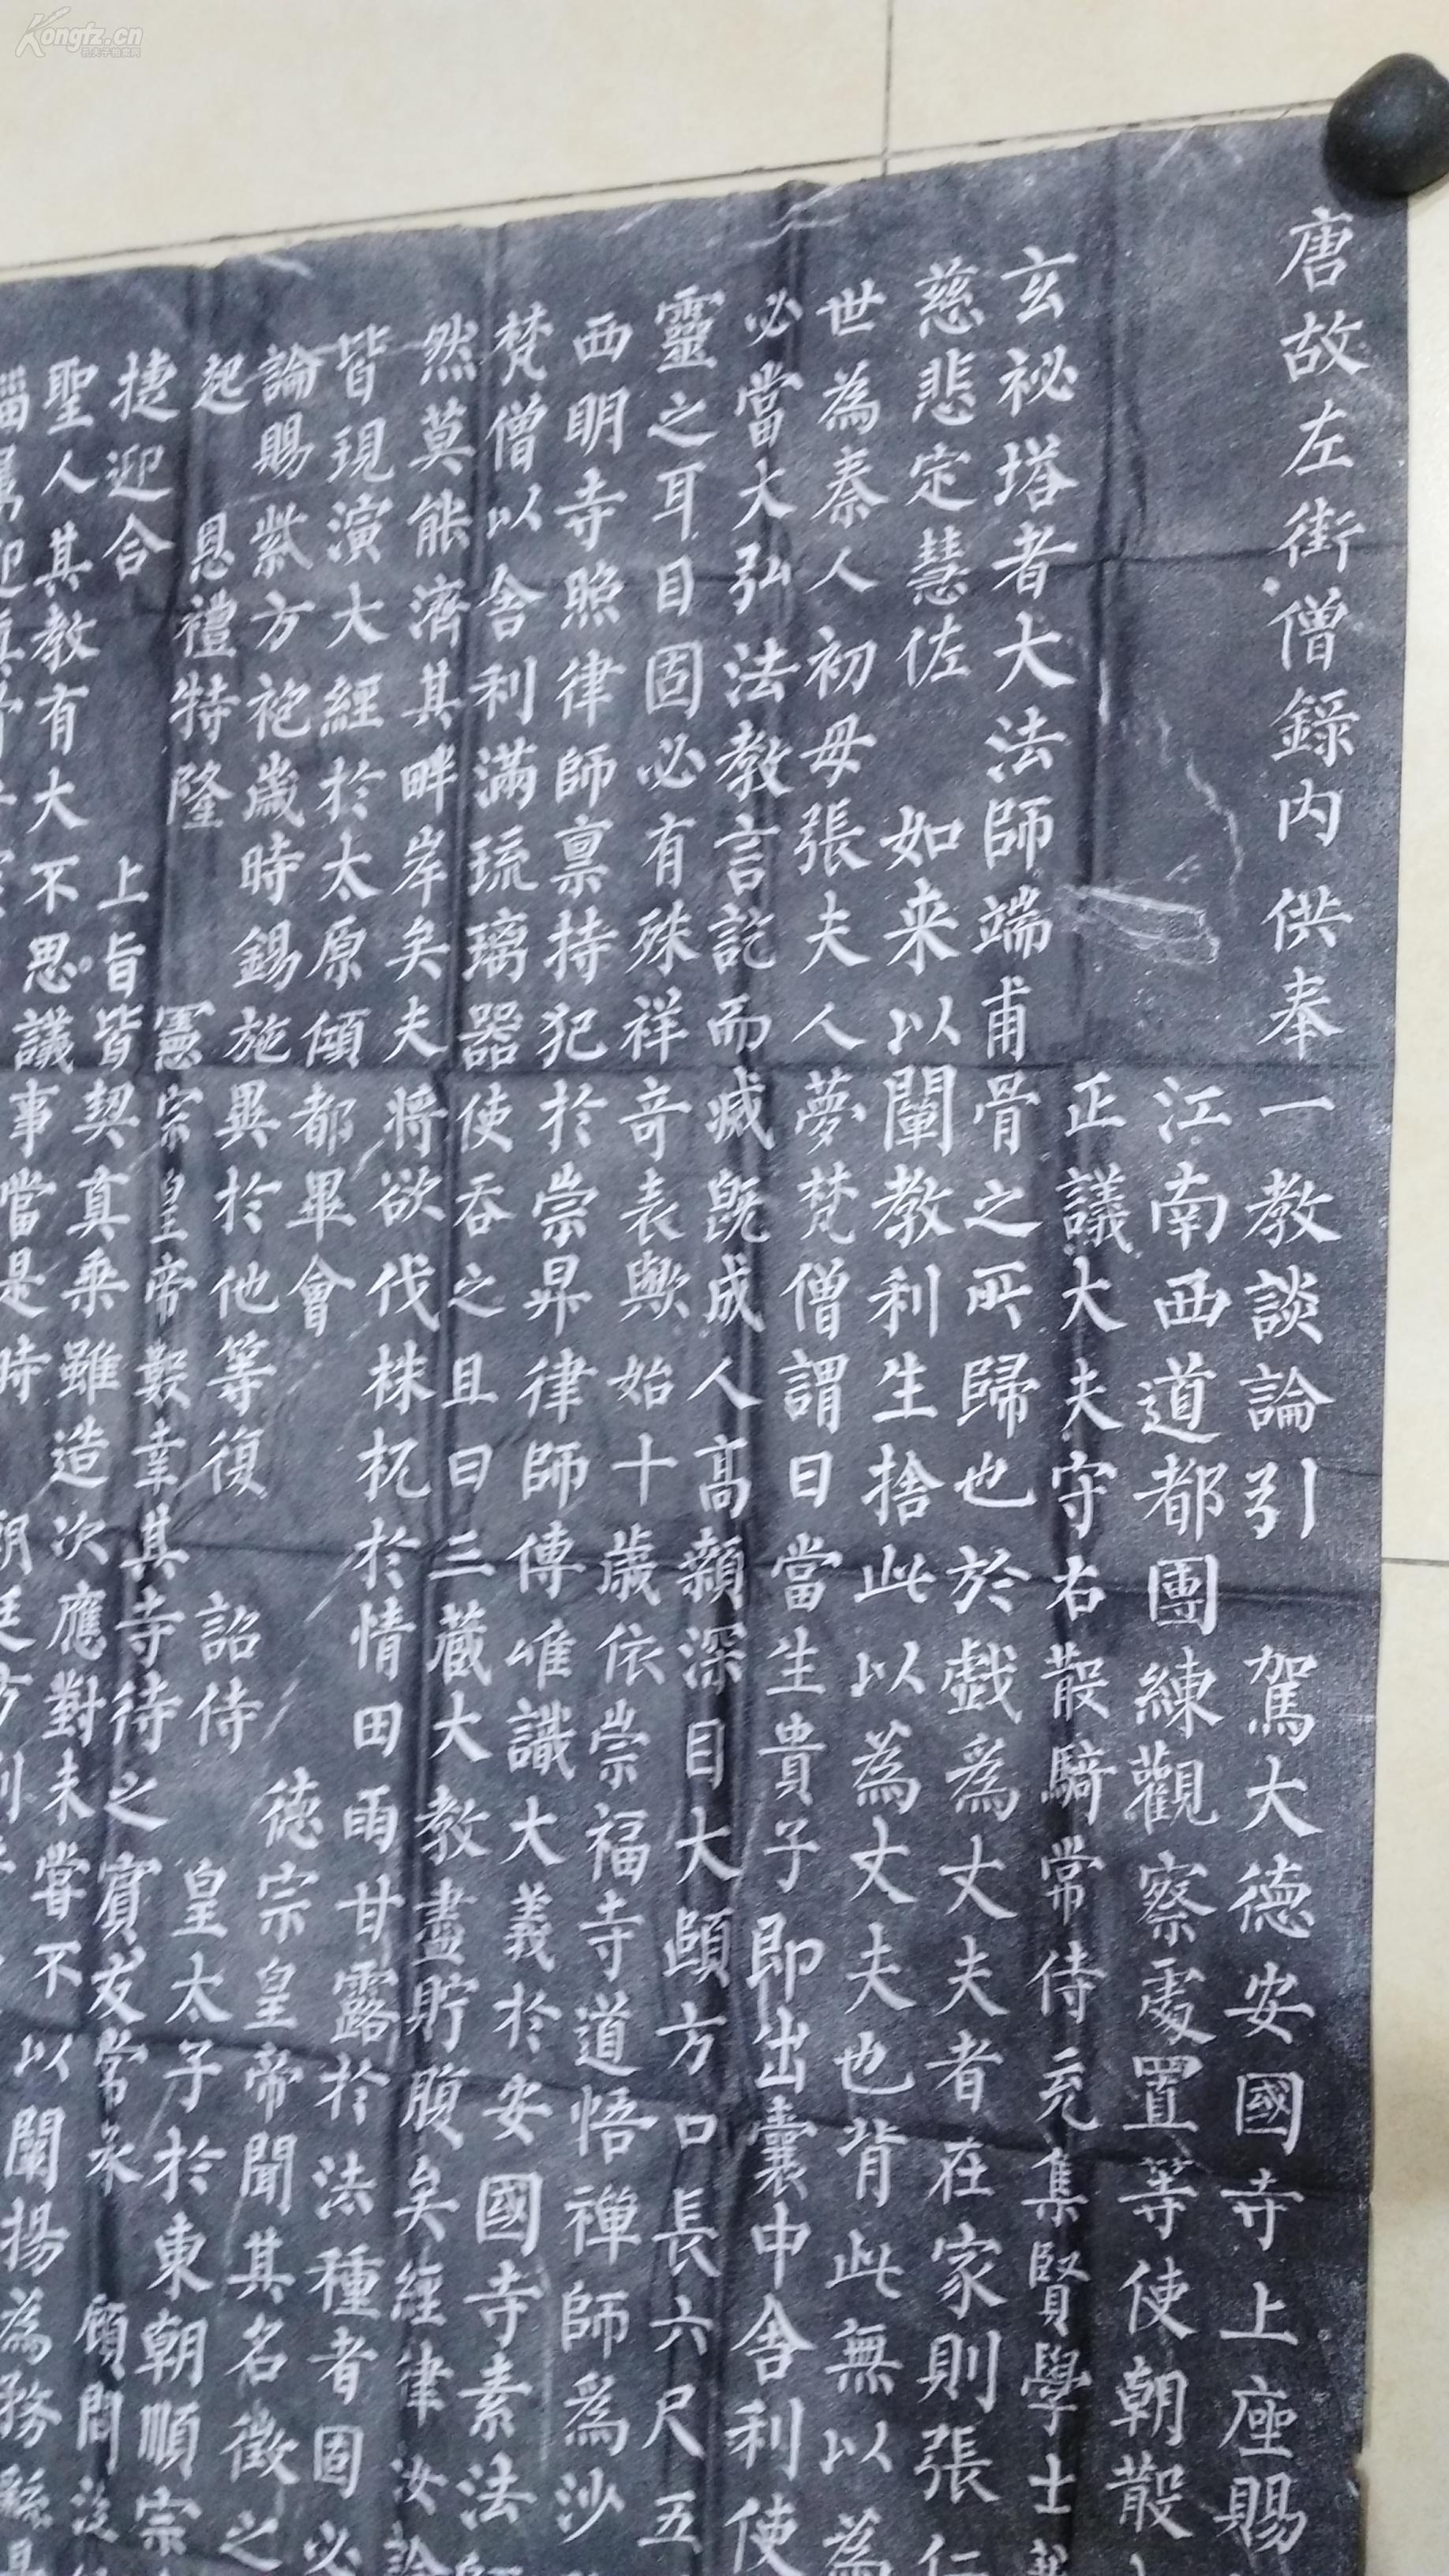 Kongfz.cn
唐故左街僧錄內供奉三教談論引 駕大德安國寺上座賜
江南西道都團練觀察處置等使朝散
正議大夫守右散騎常侍充集賢學士
玄祕塔者大法師端甫骨之所歸也於戲為丈夫者在家則張仁
慈悲定慧佐 如来以闡教利生捨此以為丈夫也背此無以為
世為秦人初母張夫人夢梵僧謂曰當生貴子即出囊中舍利使
必當大弘法教言訖而滅既成人高顙深目大頤方口長六尺五
靈之耳目固必有殊祥奇表歟始十歲依崇福寺道悟禪師為沙
西明寺照律師禀持犯於崇昇律師傳唯識大義於安國寺素法
梵僧以舍利滿琉璃器使吞之且曰三藏大教盡貯腹矣經律
然莫能濟其畔岸矣夫將欲伐株杌於情田雨甘露於法種者固必
皆現演大經於太原傾都畢會 德宗皇帝聞其名徵之
論賜紫方袍歲時錫施異於他等復 詔侍 皇太子於東朝順宗
起 恩禮特隆 憲宗皇帝數幸其寺待之若賓友常承 顧問
捷迎合 上旨皆契真乘雖造次應對未嘗不以闡揚為務
聖人其教有大不思議事當是時